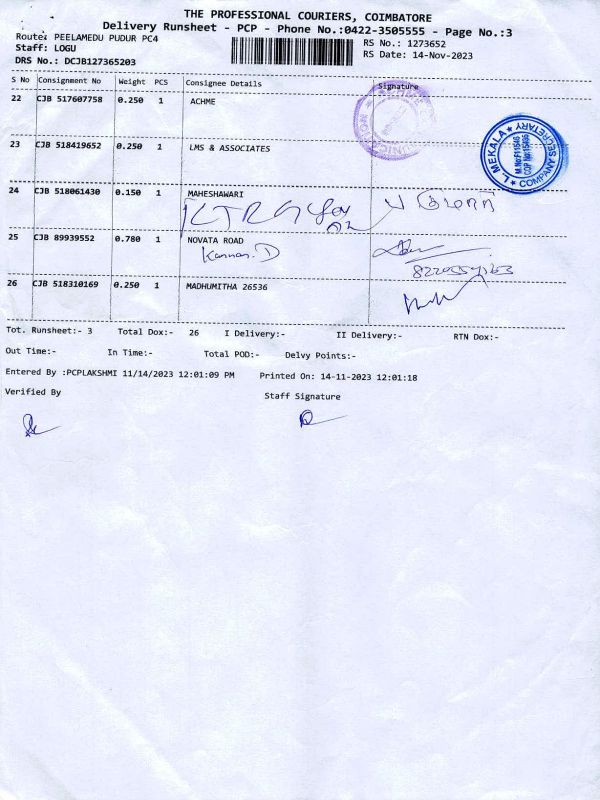 THE PROFESSIONAL COURIERS, COIMBATORE
Delivery Runsheet - PCP - Phone No.:0422-3505555 - Page No.:3
Route: PEELAMEDU PUDUR PC4
Staff: LOGU
DRS No.: DCJB127365203
RS No.: 1273652
RS Date: 14-Nov-2023
S No Consignment No Weight PCS Consignee Details Signature
22 CJB 517607758 0.250 1 ACHME
23 CJB 518419652 0.250 1 LMS & ASSOCIATES
L. MEKALA
COMPANY SECRETARY
24 CJB 518061430 0.150 1 MAHESHAWARI
25 CJB 89939552 0.780 1 NOVATA ROAD
Kannan.D
26 CJB 518310169 0.250 1 MADHUMITHA 26536
Tot. Runsheet:- 3 Total Dox:- 26 I Delivery:- II Delivery:- RTN Dox:-
Out Time:- In Time:- Total POD:- Delvy Points:-
Entered By :PCPLAKSHMI 11/14/2023 12:01:09 PM Printed On: 14-11-2023 12:01:18
Verified By Staff Signature